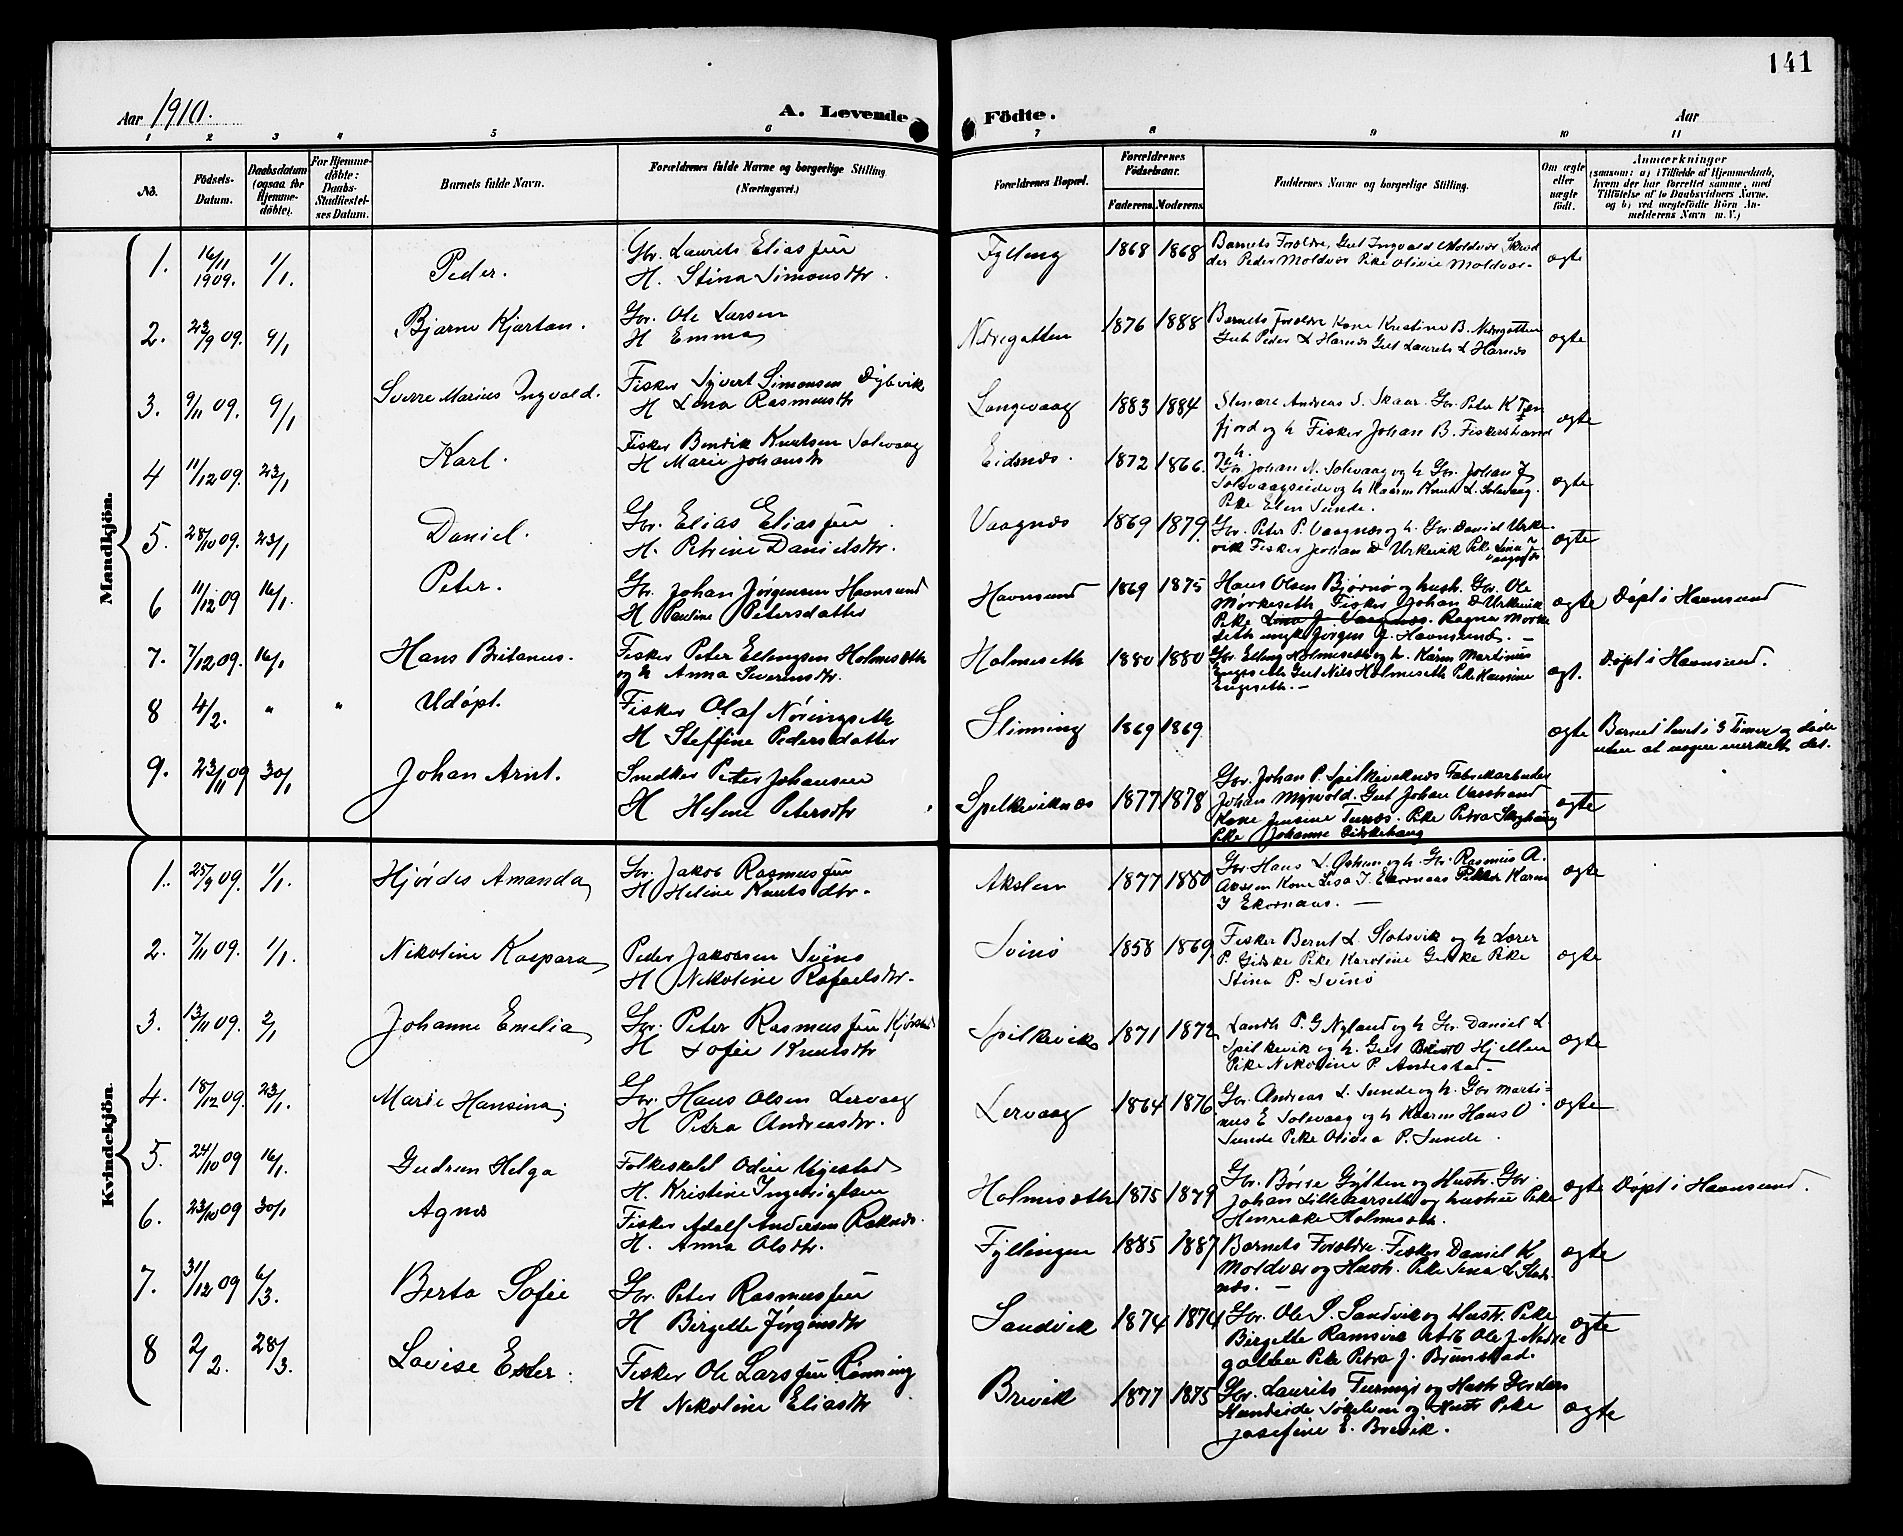 141
Aar 1910.
A. Levende
Födte.
Aar
1 2 3 4 5 6 7 8 9 10 11
No.
Födsels-
Datum.
Daabsdatum
(ogsaa for
Hjemme-
döbte).
For Hjemme-
döbte:
Daabs-
Stadfæstel-
ses Datum.
Barnets fulde Navn.
Forældrenes fulde Navne og borgerlige Stilling
(Næringsvei.)
Forældrenes Bopæl.
Forældrenes
Födselsaar.
Faderens.
Moderens.
Faddernes Navne og borgerlige Stilling.
Om ægte
eller
uægte
födt.
Anmærkninger
(saasom: a) i Tilfælde af Hjemmedaab,
hvem der har forrettet samme, med
Tilföielse af to Daabsvidners Navne.
og b) ved uægtefödte Börn An-
melderens Navn m. V.)
Mandkjön.
1. 16/11 1909. 1/1. Peder.
Gbr. Laurits Eliassen
H. Stina Simonsdtr.
Fylling 1868 1868
Barnets Foreldre, Gut Ingvald Moldvær
Peder Moldvær Pike Olivie Moldvær
ægte
2. 23/9 09. 9/1 Bjarne Kjartan.
Gbr. Ole Larsen
H Emma
Nedregotten 1876 1888
Barnets Foreldre Kone Kristine B. Nedregotten
Gut Peder L Harnes Gut Laurits L Harnes
ægte
3. 9/11 09. 9/1 Sverre Marius Ingvald.
Fisker Syvert Simonsen Dybvik
H Lena Rasmusdtr
Langevaag 1883 1884
Andreas S. Skaar. Gbr. Peter K
fjord og h Fisker Johan B. Fiskerstrand
ægte
4 11/12 09. 23/1 Karl.
Fisker Bendik Knutsen Solevaag
H Marie Johansdtr
Eidsnes. 1872 1866.
Gbr Johan N. Solevaag og h Gbr. Johan J
Solevaagseide og h Kaarm Knut L. Solevaag.
Pike Elen Sunde.
ægte
5. 28/10 09. 23/1 Daniel.
Gbr. Elias Eliassen
H. Petrine Danielsdtr.
Vaagnes 1869 1879.
Gbr. Peter P. Vaagnes og h. Gbr. Daniel Urke-
vik Fisker Johan D Urkevik Pike Lina J
Vaagnes
ægte
6 11/12 09 16/1. Peter.
Gbr. Johan Jörgensen Havnsund
H Pauline Petersdatter
Havnsund 1869 1875
Hans Olsen Bjørnø og hust. Gbr. Ole
Mørkeseth Fisker Johan D Urkevik
Pike Lina J. Vaagnes. Ragna Mørke
seth ungk Jörgen J. Havnsund.
ægte Døpt i Havnsund
7. 7/12 09. 16/1 Hans Britanus.
Fisker Peter Ellingsen Holmeseth
og h Anna Severinsdtr.
Holmeseth 1880 1880
Gbr. Elling Holmeseth og h. Kårm Martinus
Engeseth Gut Nils Holmeseth Pike Hansine
Engeseth.
ægt. Døpt i Havnsund.
8 4/2. " " Udøpt.
Fisker Olaf Nöringseth
H Steffine Pedersdatter
Slinning 1869 1869.
ægte Barnet levet i 3 Timer og døde
uten at nogen merkett det.
9. 23/11 09 30/1 Johan Arnt.
Snedker Peter Johansen
H Helene Petersdtr
Spelkeviknes 1877 1878
Gbr. Johan P. Spilkeviknes Fabrikarbeider
Johan Myrvold. Gut Johan
Kone Jensine Tunes. Pike Petra
Pike Johanne Giskehaug
ægte
Kvindekjön.
1. 25/9 09. 1/1. Hjördis Amanda
Gbr. Jakob Rasmussen
H Heline Knutsdtr.
Akslen 1877 1880
Gbr Hans L. og h. Gbr. Rasmus A.
Kone Lisa I. Ekornaas Pike Karen
I Ekornaas.
ægte
2. 7/11 09. 1/1. Nikoline Kaspara
Peder Jakobsen Svinø
H Nikoline Rafaelsdtr.
Svinø 1858 1869.
Fisker Bernt L. Slotsvik og h Lærer
P. Giske Pike Karoline Giske Pike
Stina P. Svinø
ægte
3. 13/11 09. 2/1 Johanne Emelia
Gbr. Peter Rasmussen Kjørstad
H Sofie Knutsdtr
Spilkevik 1871 1872
Landh P. G Nyland og h Gbr. Daniel L
Spilkevik og h. Gut O Hjellen
Pike Nikoline P. Andestad.
ægte
4. 18/12 09. 23/1. Marie Hansina
Gbr. Hans Olsen Lervaag
H Petra Andreasdtr.
Lervaag 1864 1876
Gbr. Andreas L. Sunde og h. Gbr Marti-
nus E Solevaag og h Kaarm Hans O
Sunde Pike Olivia P. Sunde.
ægte
5. 24/10 09 16/1. Gudrun Helga
Folkeskoll Odin Vigestad
H. Kristine Ingebrigtsen
Holmeseth 1875 1879
Gbr. Børre Gylten og Hustr. Gbr
Johan Lillebaarseth og hustru Pike
Henrikke Holmeseth.
ægte Døpt i Havnsund.
6. 23/10 09 30/1 Agnes
Fisker Adolf Andersen Raknes.
H. Anna Olsdtr.
Fyllingen 1885 1887
Barnets Foreldre. Fisker Daniel K
Moldvær og Hustr. Pike Lina L
nes.
ægte
7. 31/12 09 6/3. Berta Sofie
Gbr. Peter Rasmussen
H Birgitte Jörgensdtr
Sandvik 1874 1874
Gbr. Ole S. Sandvik og Hustr. Pike
Birgitte Ramsvik Arb Ole J. Nedre
gotten Pike Petra J. Brunstad.
ægte
8 2/2. 28/3. Lovise Ester.
Fisker Ole Larssen Rönning
H Nikoline Eliasdtr
Brevik 1877 1875
Gbr. Laurits Turmyr og Hustr Gbr Lars
Søkelven og Hustr Pike
Josefine E. Brevik.
ægte